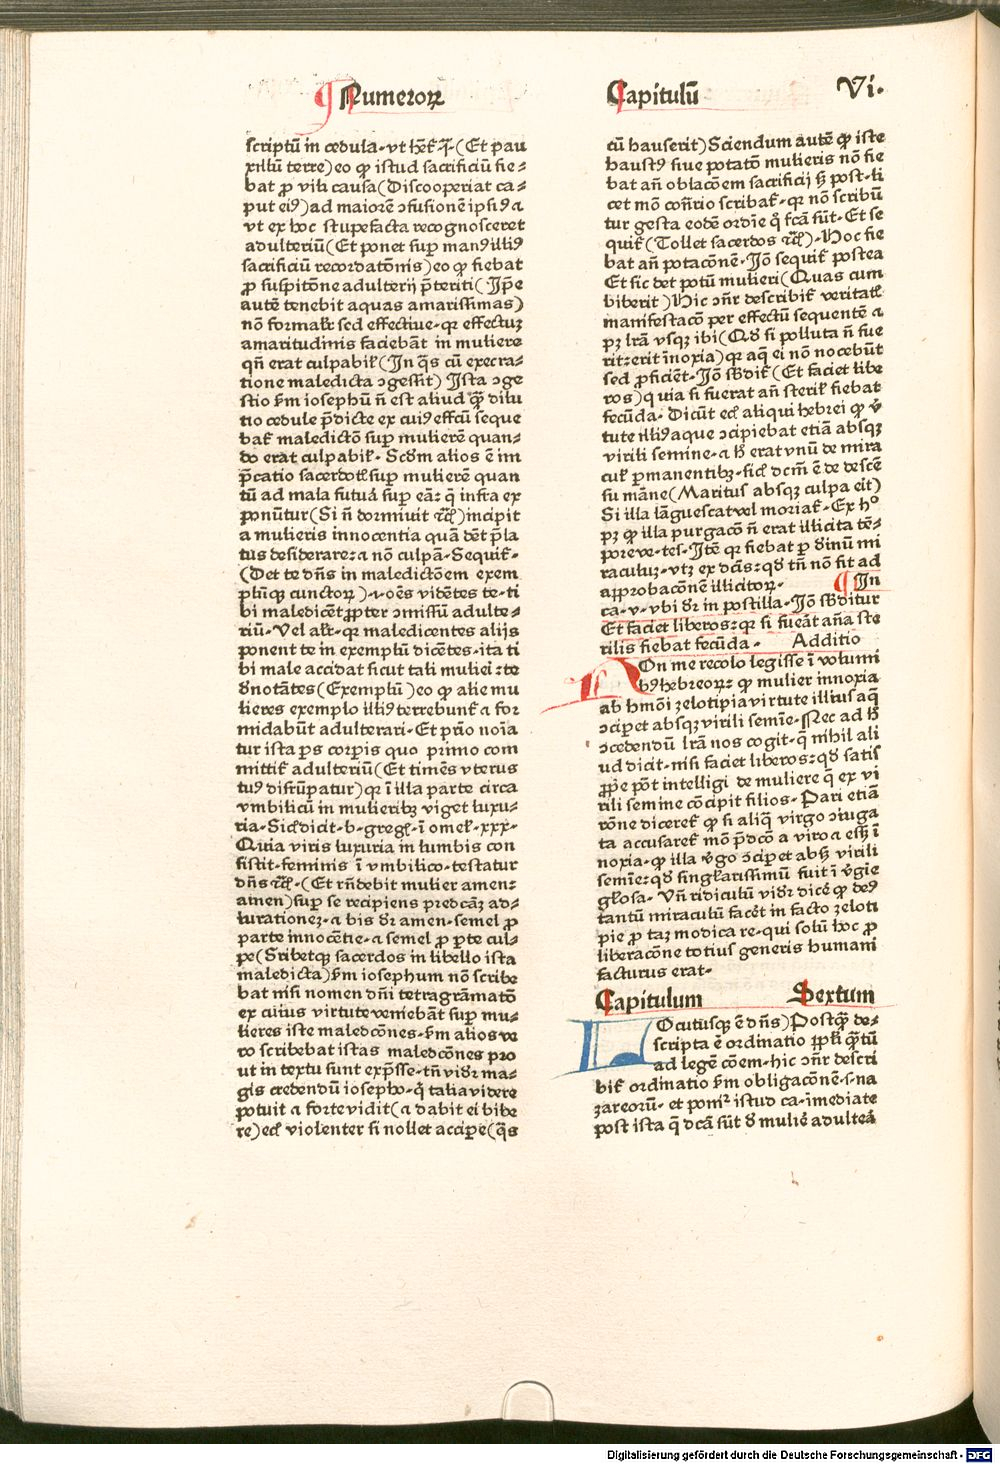 Numeroꝝ
Capitulū
Vi.
scriptū in cedula. vt hēt᷒ (Et pau
xillū terre) eo ꝙ istud sacrificiū fie⸗
bat ꝓ vili causa (Discooperiat ca⸗
put eiꝰ) ad maiorē ↄfusionē ipsiꝰ ⁊
vt ex hoc stupefacta recognosceret
adulteriū (Et ponet suꝑ manꝰ illiꝰ
sacrificiū recordatōnis) eo ꝙ fiebat
ꝓ suspitōne adulterij p̄teriti (Ip̄e
autē tenebit aquas amarissimas)
nō formalr̄ sed effectiue. qꝛ effectuꝫ
amaritudinis faciebāt in muliere
qn̄ erat culpabil' (In q̄s cū execra⸗
tione maledicta ↄgessit) Ista ↄge
stio ẜm iosephū ñ est aliud q̄ꝫ dilu
tio cedule p̄dicte ex cuiꝰ effcū seque
bat᷒ maledictō suꝑ mulierē quan⸗
do erat culpabil'. Scd̄m alios ē im
p̄catio sacerdotl' suꝑ mulierē quan
tū ad mala futura suꝑ eā: q̄ infra ex
ponūtur (Si ñ dormiuit ⁊cͣ) incipit
a mulieris innocentia quā dēt p̄la
tus desiderare: ⁊ nō culpā. Sequit᷒.
(Det te dn̄s in maledictōem exem
plūqꝫ cunctoꝝ) .i. oēs vidētes te. ti
bi maledicēt ꝓpter ↄmissū adulte⸗
riū. Vel alr̄. qꝛ maledicentes alijs
ponent te in exemplū dicētes. ita ti
bi male accidat sicut tali muliei: te
d̓notātes (Exemplū) eo ꝙ alie mu
lieres exemplo illiꝰ terrebunt᷒ ⁊ for
midabūt adulterari. Et prio noīa
tur ista ꝑs corꝑis quo primo com
mittit᷒ adulteriū (Et timēs vterus
tuꝰ disrūpatur) qꝛ ī illa parte circa
vmbilicū in mulieribꝫ viget luxu⸗
ria. Sic̄ dicit .b. gregꝭ. ī omel'. xxx.
Quia viris luxuria in lumbis con
sistit. feminis ī vmbilico. testatur
dn̄s ⁊cͣ. (Et rn̄debit mulier amen:
amen) suꝑ se recipiens predcāꝫ ad⸗
iurationeꝫ. ⁊ bis dr̄ amen. semel ꝓ
parte innocētie. ⁊ semel ꝓ ꝑte cul⸗
pe (Sribetqꝫ sacerdos in libello ista
maledicta) ẜm iosephum nō scribe
bat nisi nomen dn̄i tetragrāmatō
ex cuius virtute veniebāt suꝑ mu⸗
lieres iste maledcōnes. ẜm alios ve
ro scribebat istas maledcōnes pro
ut in textu sunt exp̄sse. tn̄ vidr̄ ma⸗
gis credendū iosepho. q̇ talia videre
potuit ⁊ forte vidit (⁊ dabit ei bibe
re) ecͣ violenter si nollet acciꝑe (q̄s
cū hauserit) Sciendum autē ꝙ iste
haustꝰ siue potatō mulieris nō fie
bat an̄ oblacōem sacrificij ꝭ post. li
cet mō cōn̄rio scribat᷒. qꝛ nō scribū
tur gesta eodē ordīe q̊ fcā sūt. Et se
quit᷒ (Tollet sacerdos ⁊cͣ). Hoc fie
bat an̄ potacōnē. Iō sequit᷒ postea
Et sic det potū mulieri (Quas cum
biberit) Hic ↄn̄r describit᷒ veritatl'
manifestacō per effectū sequentē ⁊
pꝫ lr̄a vsqꝫ ibi (Qd̓ si polluta ñ fue
rit: erit īnoxia) qꝛ aq̄ ei nō nocebūt
sed ꝓficiēt. Iō sb̄dit᷒ (Et faciet libe
ros) quia si fuerat an̄ steril' fiebat
fecūda. Dicūt ecͣ aliqui hebrei ꝙ v̓
tute illiꝰ aque ↄcipiebat etiā absqꝫ
virili semine. ⁊ h̄ erat vnū de mira
cul' ꝑmanentibꝫ. sic̄ dcm̄ ē de descē
su māne (Maritus absqꝫ culpa eit)
Si illa lāguescat vel moriat᷒. Ex hͦ
pꝫ ꝙ illa purgacō ñ erat illicita tē⸗
pore ve. tes. Itē qꝛ fiebat ꝑ d̓inū mi
raculuꝫ. vtꝫ ex dcīs: qd̓ tn̄ nō fit ad
approbacōnē illicitoꝝ. ¶ In
ca. v. vbi dr̄ in postilla. Iō sb̄ditur
Et faciet liberos: qꝛ si fueāt an̄a ste
rilis fiebat fecūda. Additio
Non me recolo legisse ī volumi
bꝰ hebreoꝝ: ꝙ mulier innoxia
ab hmōi zelotipia virtute illius aq̄
ↄciꝑet absqꝫ virili semīe. Nec ad h̄
ↄcedendū lr̄a nos cogit. q̄ nihil ali
ud dicit. nisi faciet liberos: qd̓ satis
ꝓpe pōt intelligi de muliere q̄ ex vi
rili semine cōcipit filios. Pari etiā
rōne diceret᷒ ꝙ si aliq̄ virgo ↄiuga
ta accusaret᷒ mō p̄dcō a viro ⁊ eēꝫ ī
noxia. ꝙ illa v̓go ↄciꝑet absꝫ virili
semīe: qd̓ singl'arissimū fuit ī v̓gīe
gl'osa. Vn̄ ridiculū vidr̄ dicē ꝙ deꝰ
tantū miraculū facēt in facto zeloti
pie ꝓ taꝫ modica re. qui solū hoc ꝓ
liberacōne totius generis humani
facturus erat.
Capitulum Sextum
Locutusqꝫ ē dn̄s) Postq̄ꝫ de⸗
scripta ē ordinatio ppl'i q̄ꝫtū
ad legē cōem. hic ↄn̄r descri
bit᷒ ordinatio ẜm obligacōnē .s. na
zareorū. et ponit᷒ istud ca. īmediate
post ista q̄ dcā sūt d̓ mulie᷒ adulteᷓ
Digitalisierung gefördert durch die Deutsche Forschungsgemeinschaft - DFG